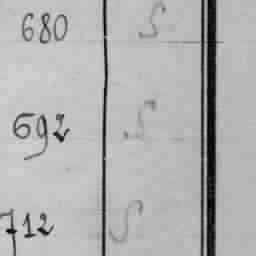 680 S
692 S
712 S